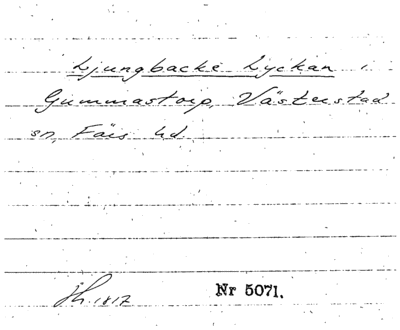 Ljungbacke Lyckan i
Gummastorp, Västerstad
sn, Färs hd.
Jh. 1817
Nr 5071.